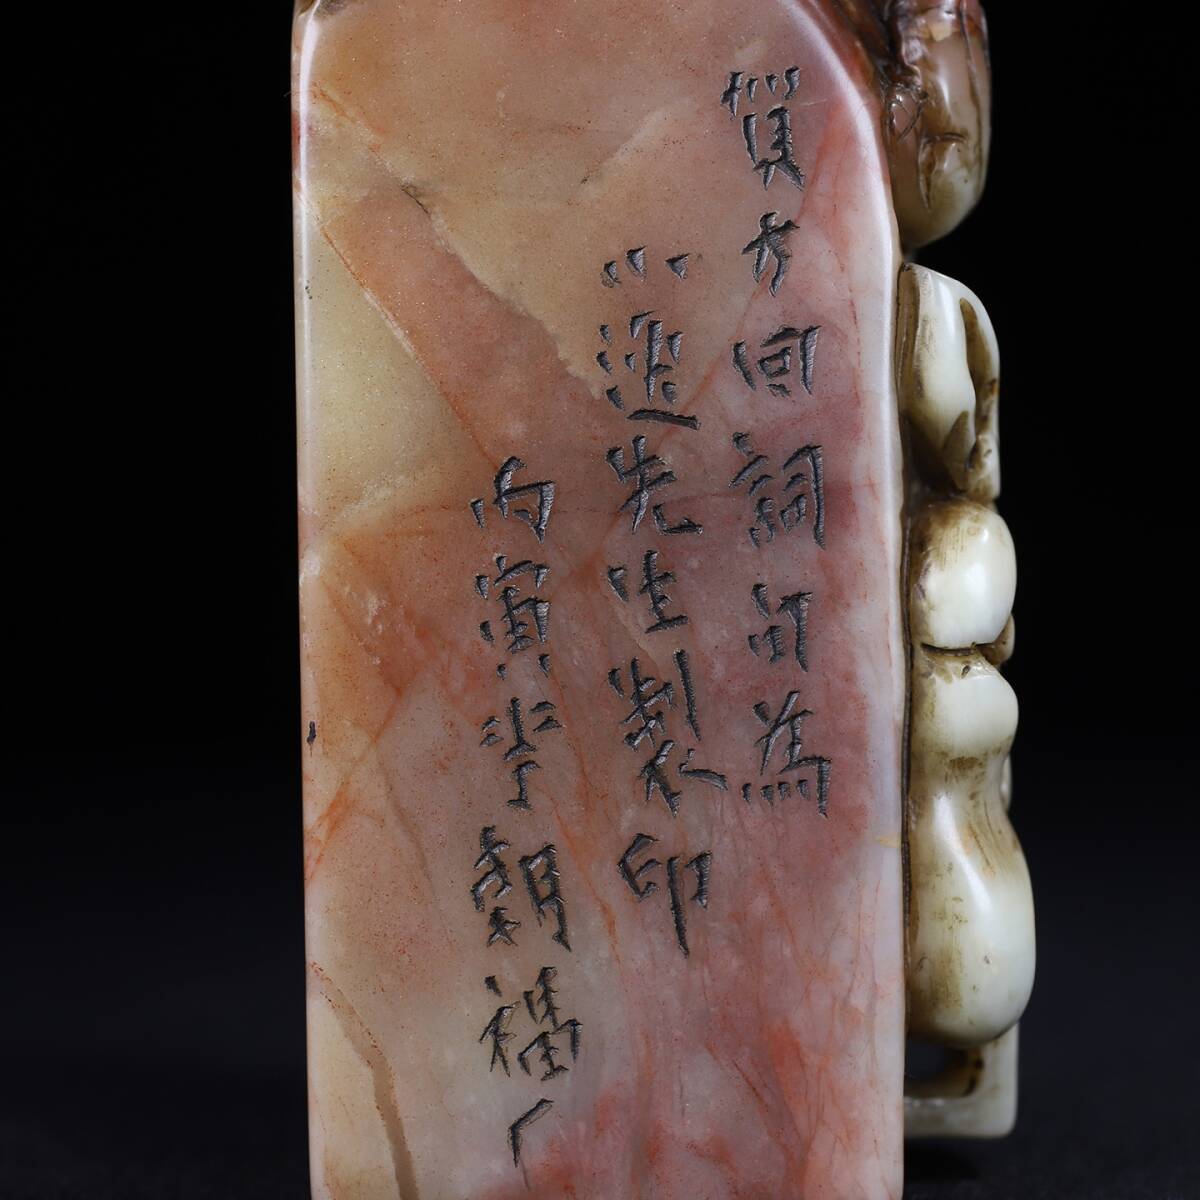 賀方回詞句為
小先生製印
丙寅朝福厂